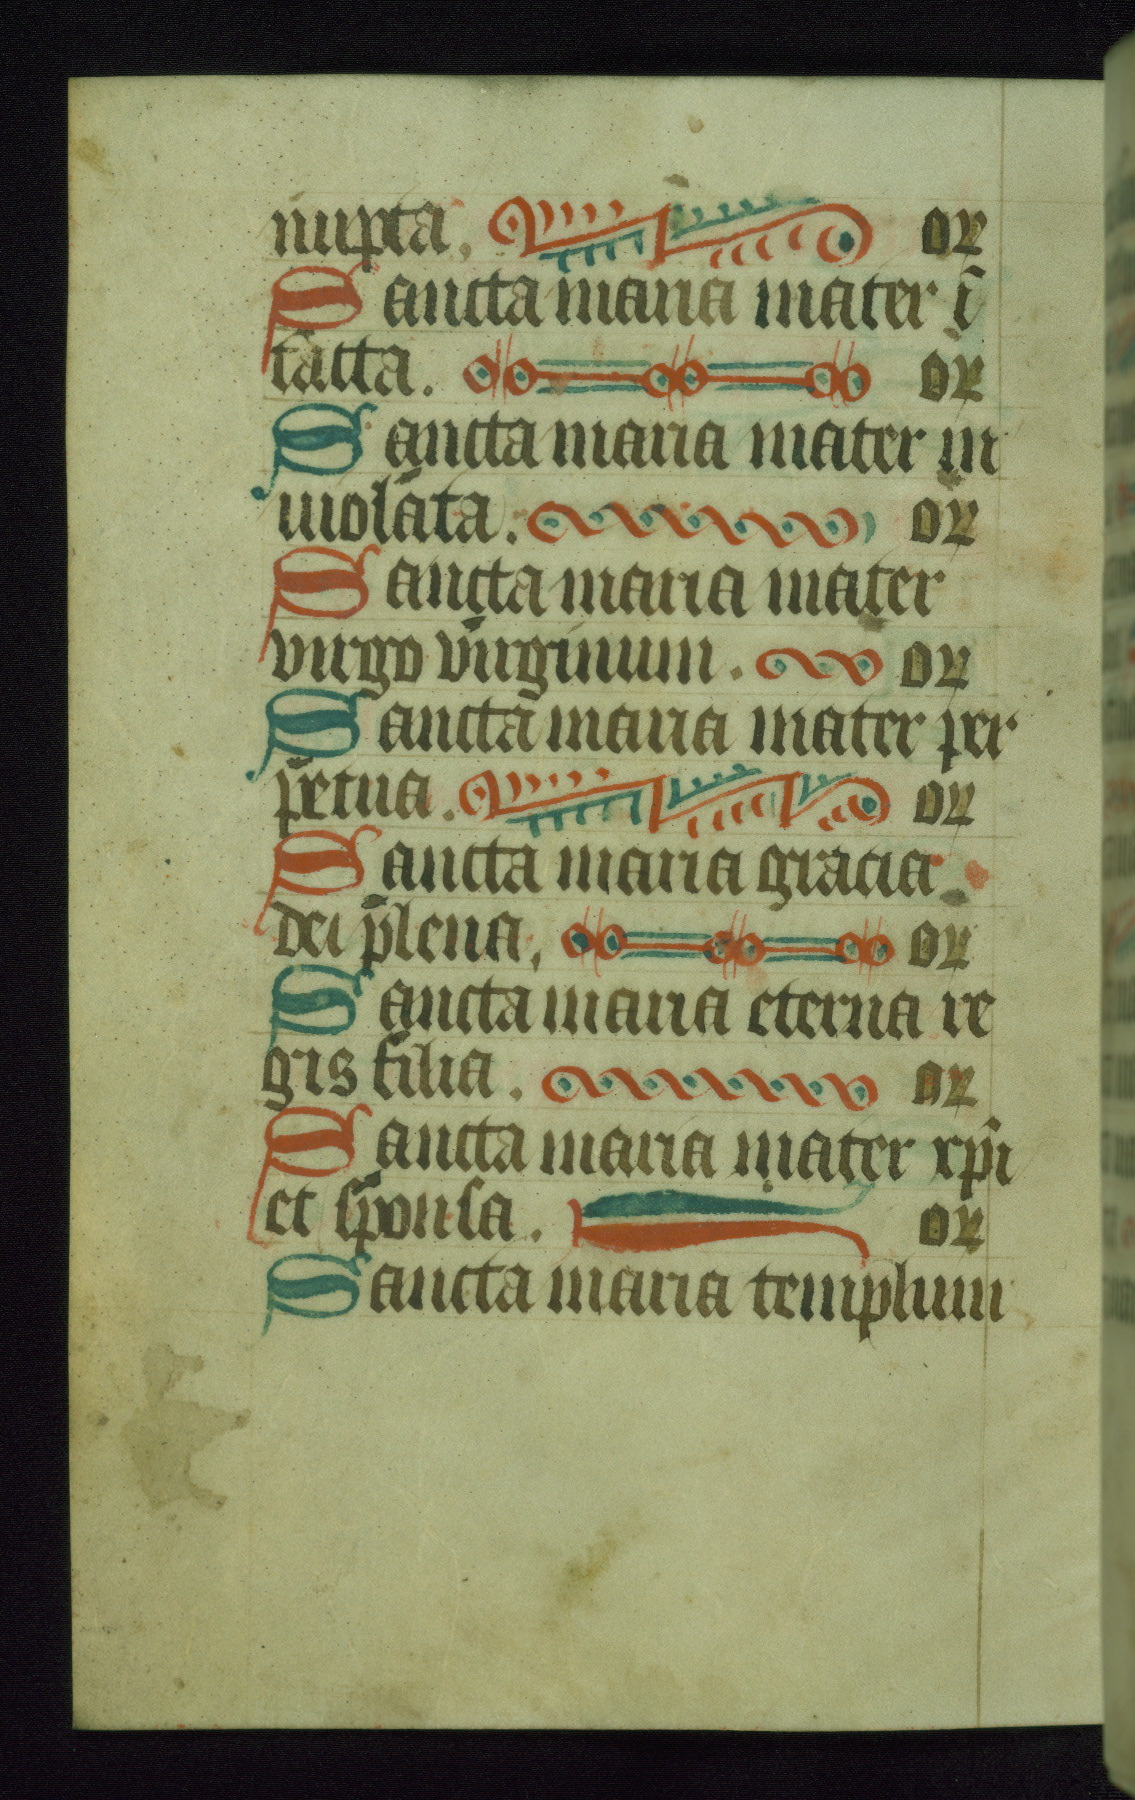 nupta. or
Sancta maria mater ī
tacta. or
Sancta maria mater in
uiolata. or
Sancta maria mater
virgo virginum. or
Sancta maria mater per
petua. or
Sancta maria gracia
dei plena, or
Sancta maria eterna re
gis filia. or
Sancta maria mater xp̄i
et sponsa. or
Sancta maria templum